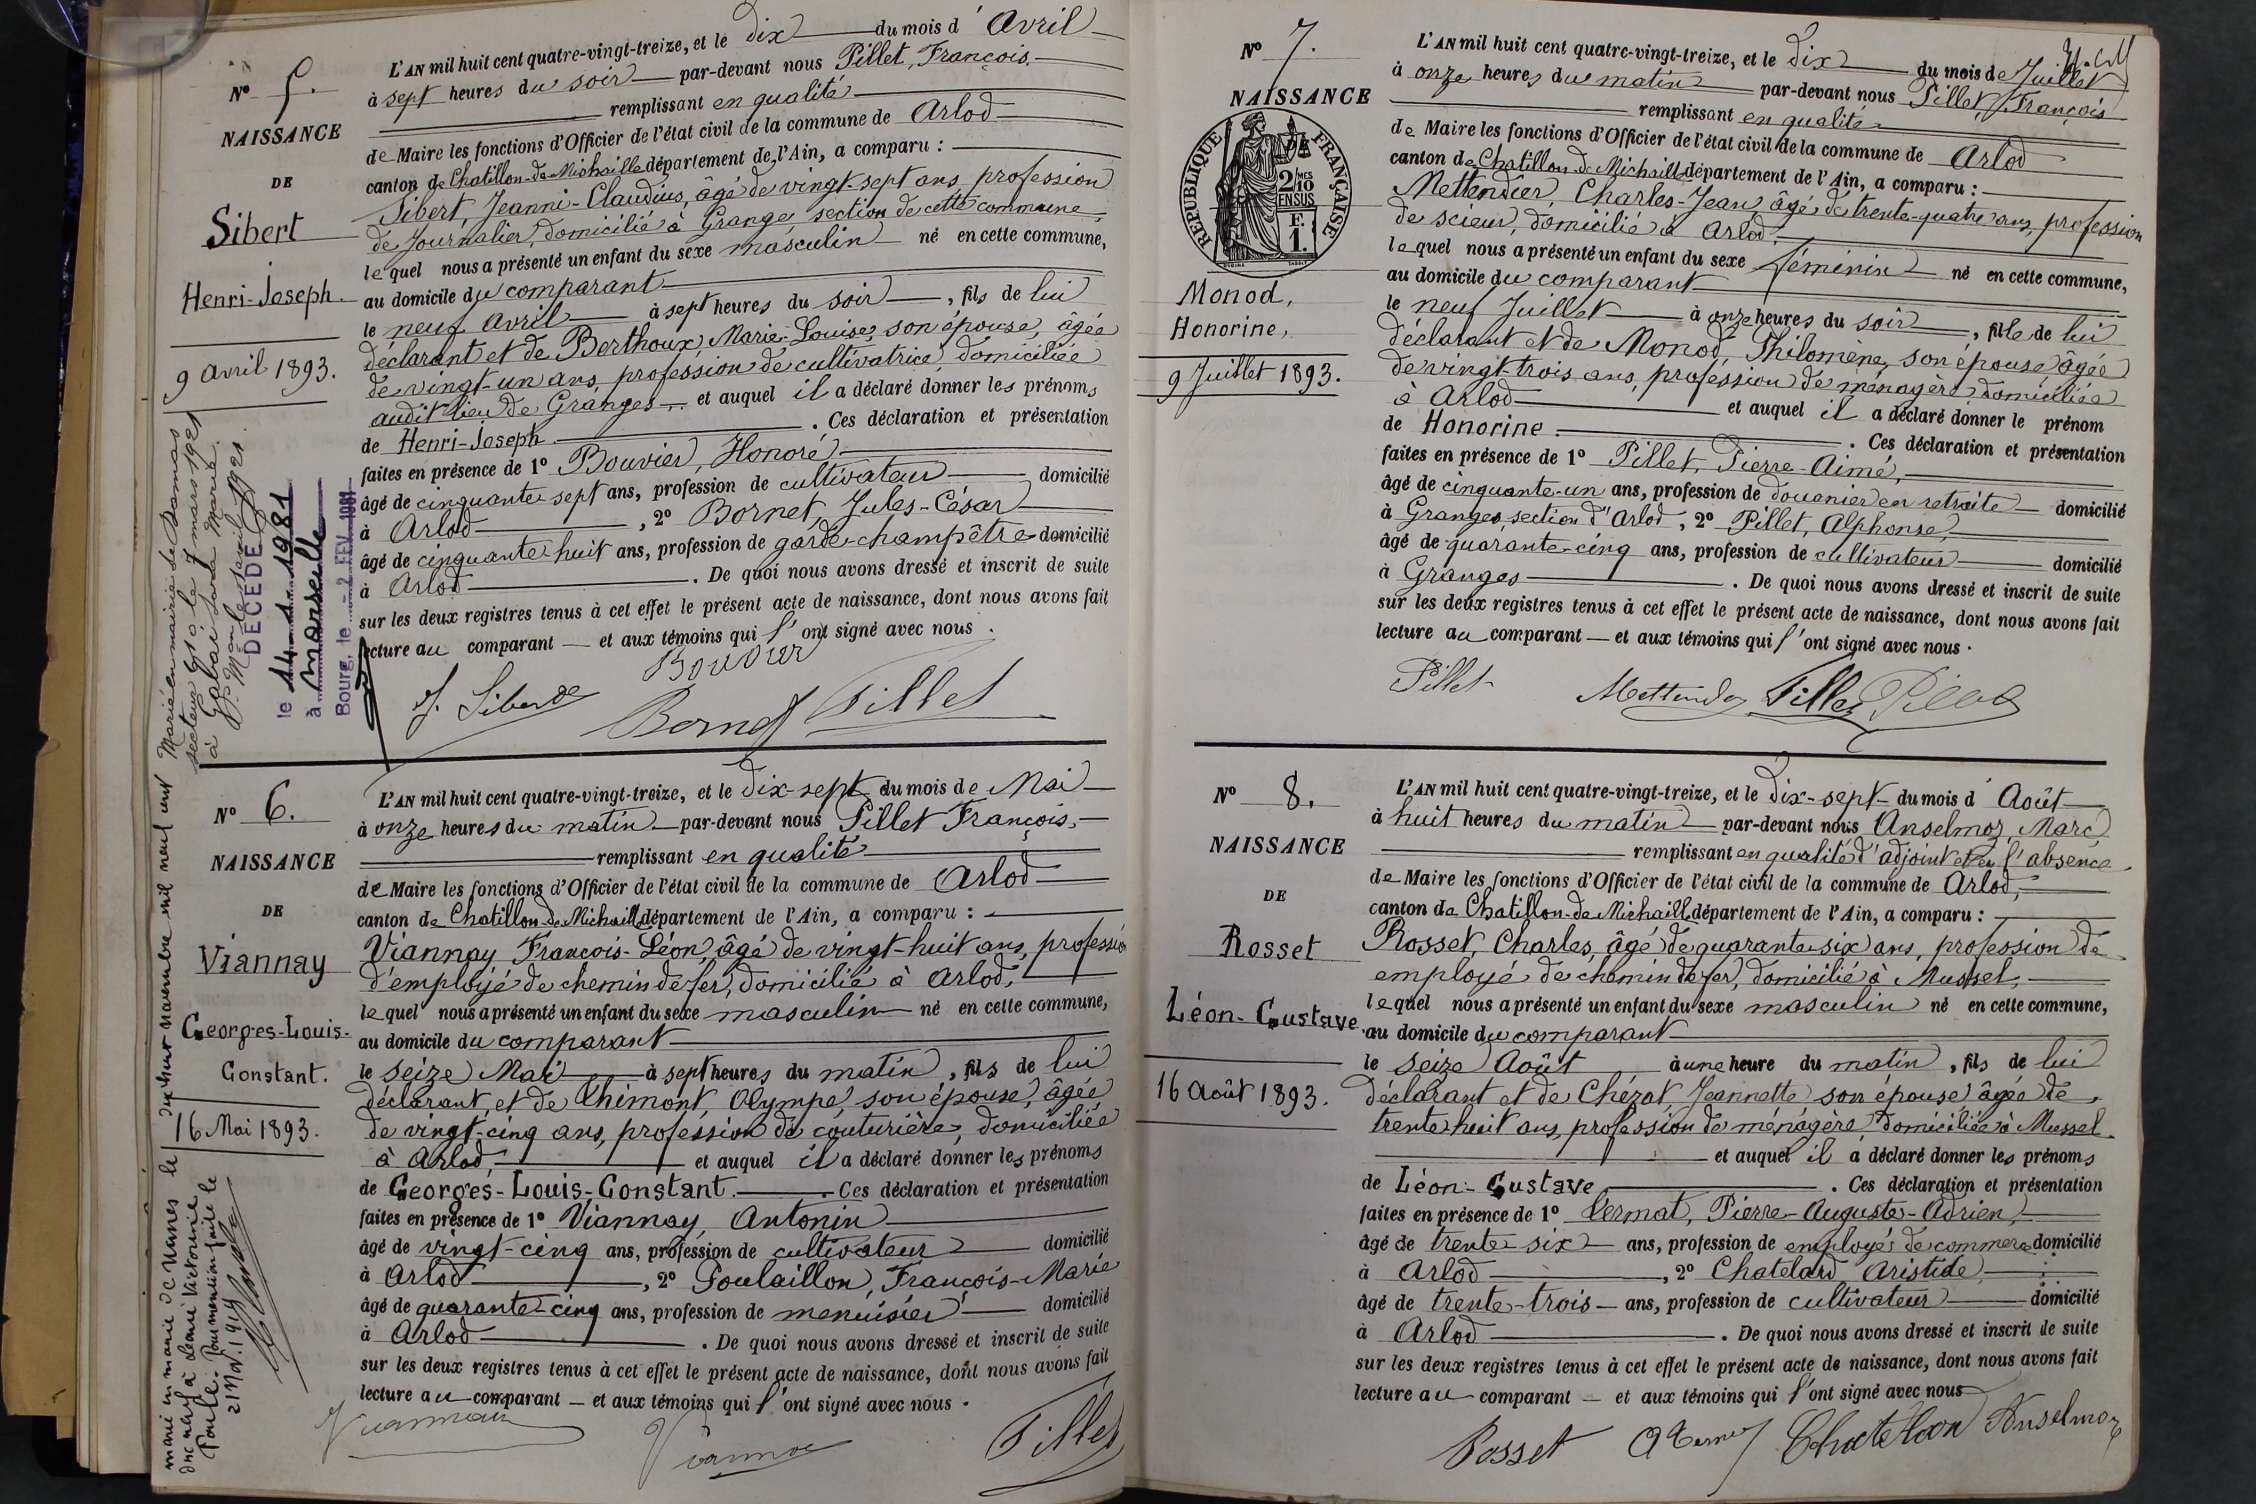 N° 5.
NAISSANCE
DE
Sibert
Henri-Joseph.
9 avril 1893.
Marié en mairie de
le 7 mars 1921
à
DÉCÉDÉ
le 14-1-1981
à Marseille
Bourg, le -2 FEV 1981
L'AN mil huit cent quatre-vingt-treize, et le dix du mois d'Avril
à sept heures du soir par-devant nous Pillet, François,
remplissant en qualité
de Maire les fonctions d'Officier de l'état civil de la commune de Arlod
canton de Chatillon-de-Michaille département de l'Ain, a comparu :
Sibert, Jeanni-Claudius, âgé de vingt-sept ans, profession
de Journalier, domicilié à Granges section de cette commune,
lequel nous a présenté un enfant du sexe masculin né en cette commune,
au domicile du comparant
le neuf avril à sept heures du soir, fils de lui
déclarant et de Berthoux, Marie-Louise, son épouse, âgée
de vingt-un ans, profession de cultivatrice, domiciliée
audit lieu de Granges et auquel il a déclaré donner les prénoms
de Henri-Joseph. Ces déclaration et présentation
faites en présence de 1° Bouvier, Honoré
âgé de cinquante sept ans, profession de cultivateur domicilié
à Arlod, 2° Bornet, Jules-César
âgé de cinquante-huit ans, profession de garde-champêtre domicilié
à Arlod. De quoi nous avons dressé et inscrit de suite
sur les deux registres tenus à cet effet le présent acte de naissance, dont nous avons fait
lecture au comparant et aux témoins qui l'ont signé avec nous.
J. Sibert Bouvier Bornet Pillet
N° 6.
NAISSANCE
DE
Viannay
Georges-Louis-
Constant.
16 Mai 1893.
marié en mairie de le dix huit novembre mil neuf cent
à Leonie Victorine
Pour mention faite le
21 Nov. 1919
L'AN mil huit cent quatre-vingt-treize, et le dix-sept du mois de Mai
à onze heures du matin par-devant nous Pillet François,
remplissant en qualité
de Maire les fonctions d'Officier de l'état civil de la commune de Arlod
canton de Chatillon-de-Michaille département de l'Ain, a comparu :
Viannay François-Léon, âgé de vingt-huit ans, profession
d'employé de chemin de fer, domicilié à Arlod,
lequel nous a présenté un enfant du sexe masculin né en cette commune,
au domicile du comparant
le seize Mai à sept heures du matin, fils de lui
déclarant, et de Chimont, Olympe, son épouse, âgée
de vingt-cinq ans, profession de couturière, domiciliée
à Arlod, et auquel il a déclaré donner les prénoms
de Georges-Louis-Constant. Ces déclaration et présentation
faites en présence de 1° Viannay, Antonin
âgé de vingt-cinq ans, profession de cultivateur domicilié
à Arlod, 2° Poulaillon, François-Marie
âgé de quarante-cinq ans, profession de menuisier domicilié
à Arlod. De quoi nous avons dressé et inscrit de suite
sur les deux registres tenus à cet effet le présent acte de naissance, dont nous avons fait
lecture au comparant et aux témoins qui l'ont signé avec nous.
Viannay Viannay Pillet
N° 7.
NAISSANCE
RÉPUBLIQUE FRANÇAISE
2/10 MES
EN SUS
F.
1.
Monod,
Honorine,
9 Juillet 1893.
L'AN mil huit cent quatre-vingt-treize, et le dix du mois de Juillet
à onze heures du matin par-devant nous Pillet, François
remplissant en qualité
de Maire les fonctions d'Officier de l'état civil de la commune de Arlod
canton de Chatillon-de-Michaille département de l'Ain, a comparu :
Mettendier, Charles-Jean, âgé de trente-quatre ans, profession
de scieur, domicilié à Arlod,
lequel nous a présenté un enfant du sexe féminin né en cette commune,
au domicile du comparant
le neuf Juillet à onze heures du soir, fille de lui
déclarant et de Monod, Philomène, son épouse âgée
de vingt-trois ans, profession de ménagère domiciliée
à Arlod et auquel il a déclaré donner le prénom
de Honorine. Ces déclaration et présentation
faites en présence de 1° Pillet, Pierre-Aimé,
âgé de cinquante-un ans, profession de douanier en retraite domicilié
à Granges, section d'Arlod, 2° Pillet, Alphonse,
âgé de quarante-cinq ans, profession de cultivateur domicilié
à Granges. De quoi nous avons dressé et inscrit de suite
sur les deux registres tenus à cet effet le présent acte de naissance, dont nous avons fait
lecture au comparant et aux témoins qui l'ont signé avec nous.
Pillet Mettendier Pillet Pillet
N° 8.
NAISSANCE
DE
Rosset
Léon-Gustave.
16 Août 1893.
L'AN mil huit cent quatre-vingt-treize, et le dix-sept du mois d'Août
à huit heures du matin par-devant nous Anselmoz, Marc
remplissant en qualité d'adjoint et en l'absence
de Maire les fonctions d'Officier de l'état civil de la commune de Arlod,
canton de Chatillon-de-Michaille département de l'Ain, a comparu :
Rosset, Charles, âgé de quarante-six ans, profession de
employé de chemin de fer, domicilié à Mussel,
lequel nous a présenté un enfant du sexe masculin né en cette commune,
au domicile du comparant
le seize Août à une heure du matin, fils de lui
déclarant et de Chézot, Jeannette son épouse âgée de
trente huit ans, profession de ménagère, domiciliée à Mussel
et auquel il a déclaré donner les prénoms
de Léon-Gustave. Ces déclaration et présentation
faites en présence de 1° Pierre-Auguste-Adrien,
âgé de trente six ans, profession de employé de commerce domicilié
à Arlod, 2° Chatelard Aristide,
âgé de trente-trois ans, profession de cultivateur domicilié
à Arlod. De quoi nous avons dressé et inscrit de suite
sur les deux registres tenus à cet effet le présent acte de naissance, dont nous avons fait
lecture au comparant et aux témoins qui l'ont signé avec nous
Rosset Chatelard Anselmoz